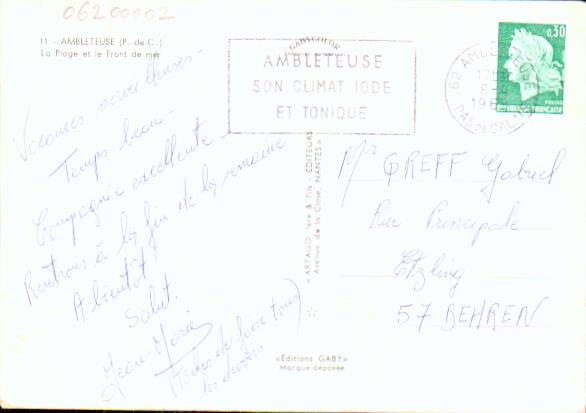 06200002
11 - AMBLETEUSE (P.-de-C.)
La Plage et le Front de mer
GABYCOLOR
AMBLETEUSE
SON CLIMAT IODE
ET TONIQUE
62 AMBLETEUSE
17
8
196
PAS DE CALAIS
0,30
POSTES
REPUBLIQUE FRANÇAISE
Vacances merveilleuses -
Temps beau -
Compagnie excellente -
Rentrons à la fin de la semaine
A bientôt
Salut.
Jean-Marie
faire tous
les devoirs
« ARTAUD Père & Fils - ÉDITEURS
Avenue de la Close, NANTES »
Mr GREFF Gabriel
Rue Principale
Etzling
57 BEHREN
«Éditions GABY»
Marque déposée